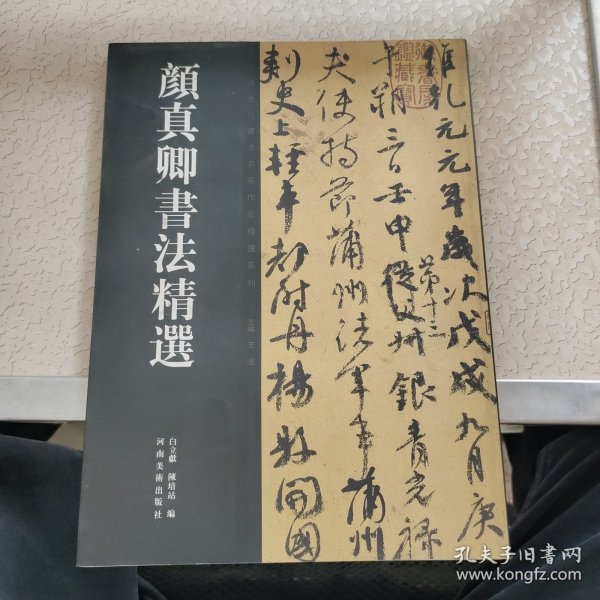 顔真卿書法精選
白立獻 陳培站 編
河南美術出版社
書法名家作品精選系列 主編 王
維乾元元年歲次戊戌九月庚
午朔三日壬申第十三從父銀青光祿
夫使持節蒲州諸軍事蒲州
刺史上輕車都尉丹楊縣開國
孔夫子旧书网
www.kongfz.com